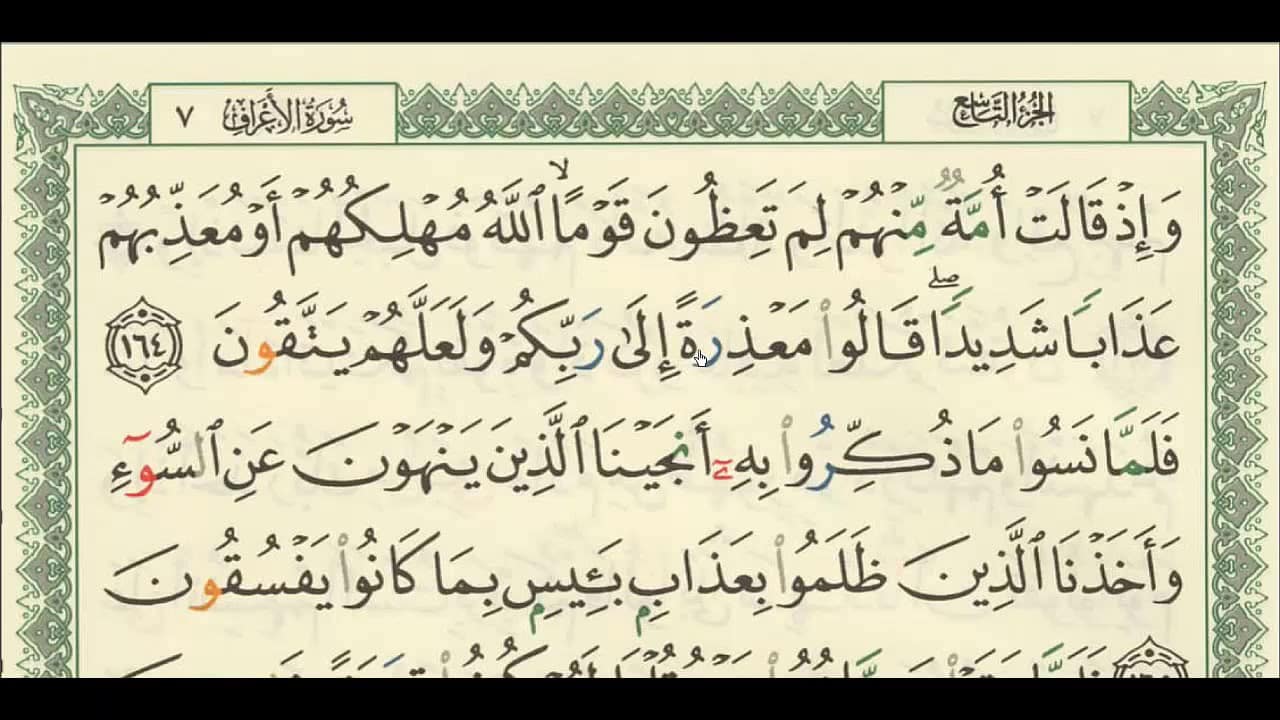 سُورَةُ الأَعْرَافِ ٧
الجُزْءُ التَّاسِعُ
وَإِذْ قَالَتْ أُمَّةٌ مِّنْهُمْ لِمَ تَعِظُونَ قَوْمًا ۙ ٱللَّهُ مُهْلِكُهُمْ أَوْ مُعَذِّبُهُمْ
عَذَابًا شَدِيدًا ۖ قَالُوا۟ مَعْذِرَةً إِلَىٰ رَبِّكُمْ وَلَعَلَّهُمْ يَتَّقُونَ ١٦٤
فَلَمَّا نَسُوا۟ مَا ذُكِّرُوا۟ بِهِۦٓ أَنجَيْنَا ٱلَّذِينَ يَنْهَوْنَ عَنِ ٱلسُّوٓءِ
وَأَخَذْنَا ٱلَّذِينَ ظَلَمُوا۟ بِعَذَابٍۭ بَـِٔيسٍۭ بِمَا كَانُوا۟ يَفْسُقُونَ